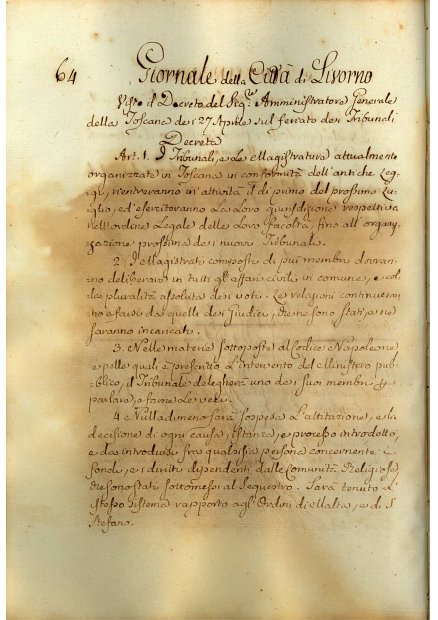 64 Giornale della Città di Livorno
Visto il Decreto del Sig.re Amministratore Generale
della Toscana de 27 Aprile sul feriato dei Tribunali
Decreta
Art. 1. I Tribunali, e le Magistrature attualmente
organizzate in Toscana in conformità dell'antiche Leg-
gi, rientreranno in attività il dì primo del prossimo Lu-
glio, ed eserciteranno la loro giurisdizione respettiva
nell'ordine legale delle loro facoltà, fino all'organiz-
zazione prossima dei nuovi Tribunali.
2. I Magistrati composti di più membri dovran-
no deliberare in tutti gli affari civili in comune, e col-
la pluralità assoluta dei voti. Le relazioni continueran-
no a farsi da quelli dei Giudici, che ne sono stati, e ne
saranno incaricati.
3. Nelle materie sottoposte al Codice Napoleone
e pelle quali è prescritto l'intervento del Ministero pub-
blico, il Tribunale delegherà uno dei suoi membri p
parlare, o farne le veci.
4. Nulladimeno sarà sospesa l'attitazione, e la
decisione di ogni causa, istanza, e processo introdotto,
e da introdursi fra qualsisia persona concernente i
fondi, e i diritti dipendenti dalle Comunità Religiose
che sono stati sottomessi al Sequestro. Sarà tenuto l'
istesso sistema rapporto agl'Ordini di Malta, e di S.
Stefano.